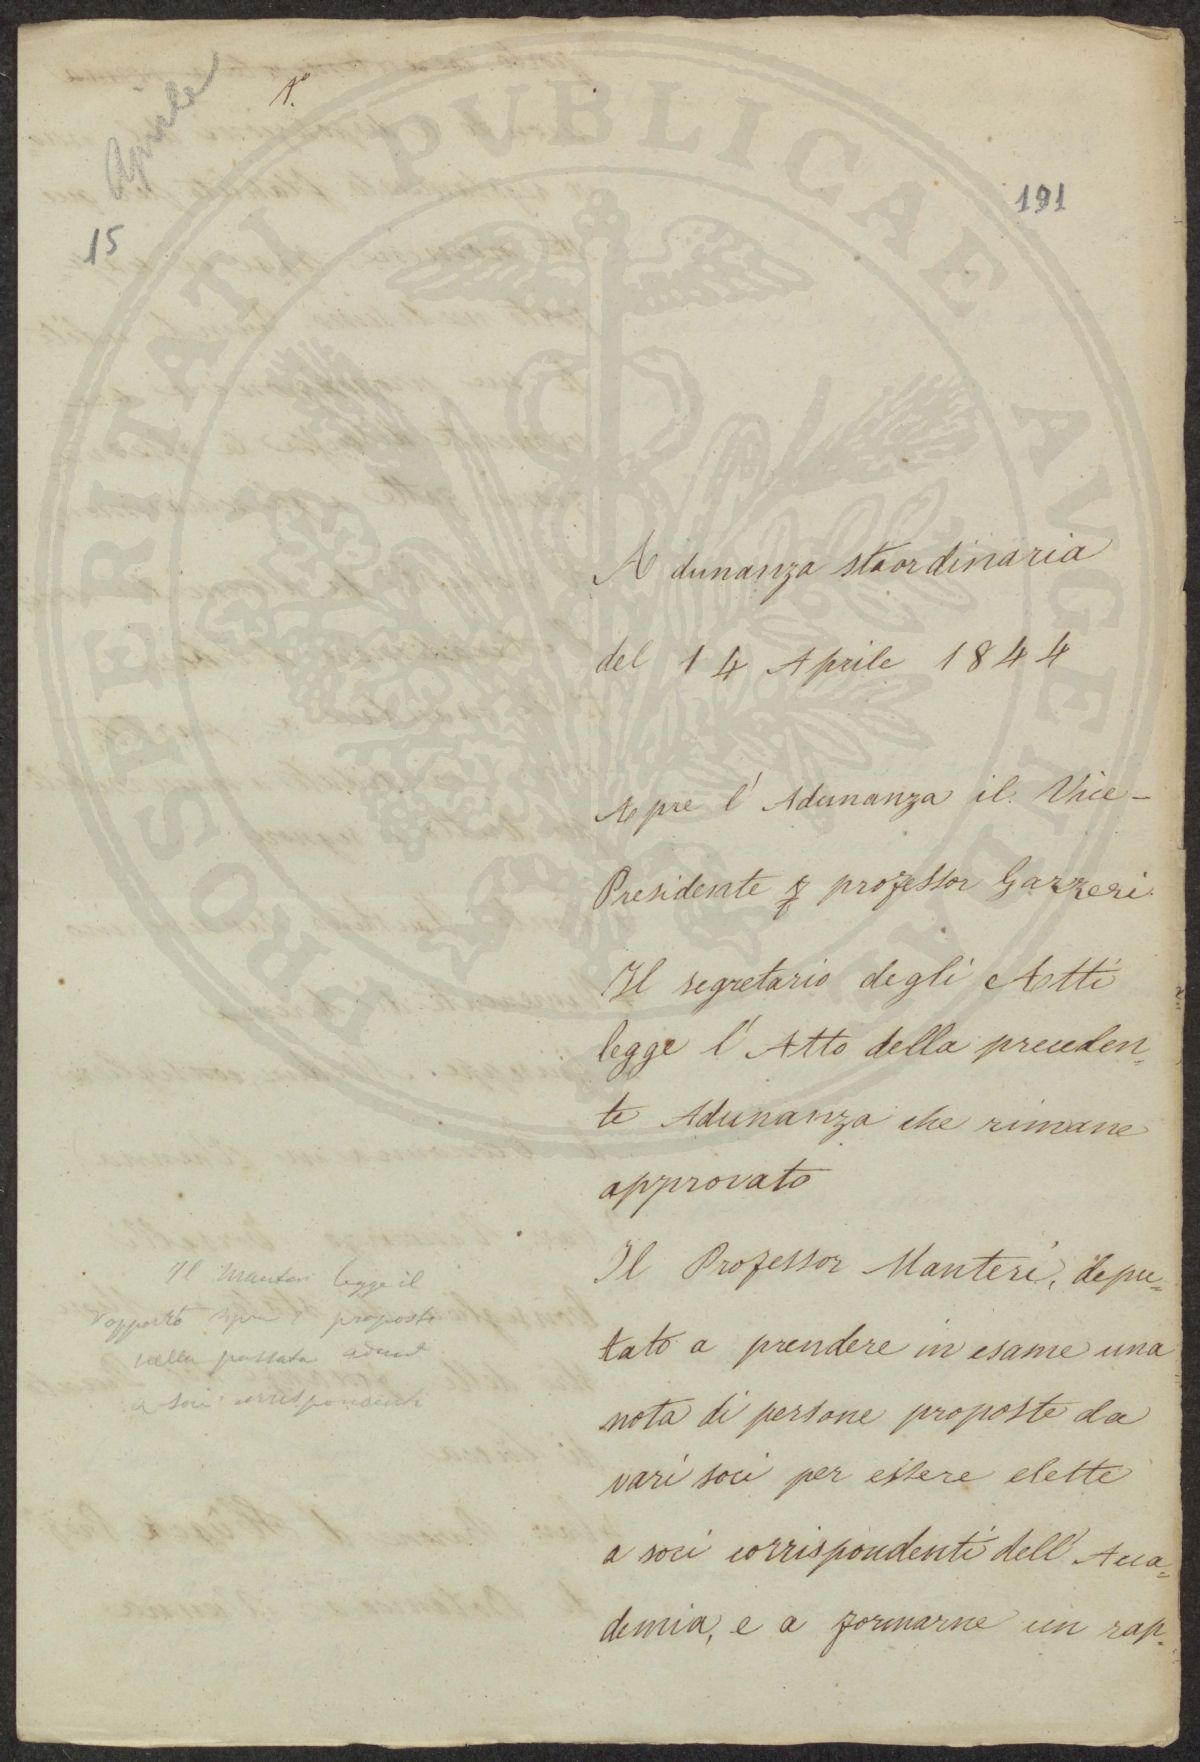 Aprile
1°
15
191
Adunanza staordinaria
del 14 Aprile 1844
Apre l'Adunanza il Vice-
Presidente professor Gazzeri.
Il segretario degli Atti
legge l'Atto della preceden=
te Adunanza che rimane
approvato
Il Professor Manteri, depu=
tato a prendere in esame una
nota di persone proposte da
vari soci per essere elette
a soci corrispondenti dell'Acca=
demia, e a formarne un rap=
Il Manteri legge il
rapporto sopra i proposti
nella passata adun
a soci corrispondenti
PROSPERITATI PUBLICAE AUGENDAE